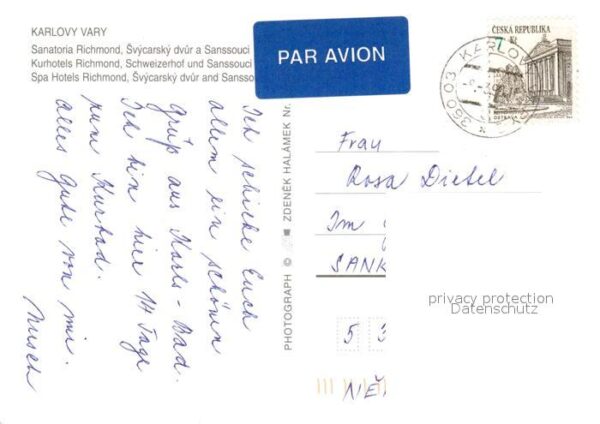 KARLOVY VARY
Sanatoria Richmond, Švýcarský dvůr a Sanssouci
Kurhotels Richmond, Schweizerhof und Sanssouci
Spa Hotels Richmond, Švýcarský dvůr and Sansso
PAR AVION
ČESKÁ REPUBLIKA
7 Kč
OSTRAVA
360 03 KARLOVY
Ich schicke Euch
allen ein schönen
Gruß aus Karls-Bad.
Ich bin hier 14 Tage
zum Kurbad.
Alles Gute von mir.
PHOTOGRAPH © ZDENĚK HALÁMEK Nr.
Frau
Rosa Dietel
Im
SANK
5 3
NĚ
privacy protection
Datenschutz